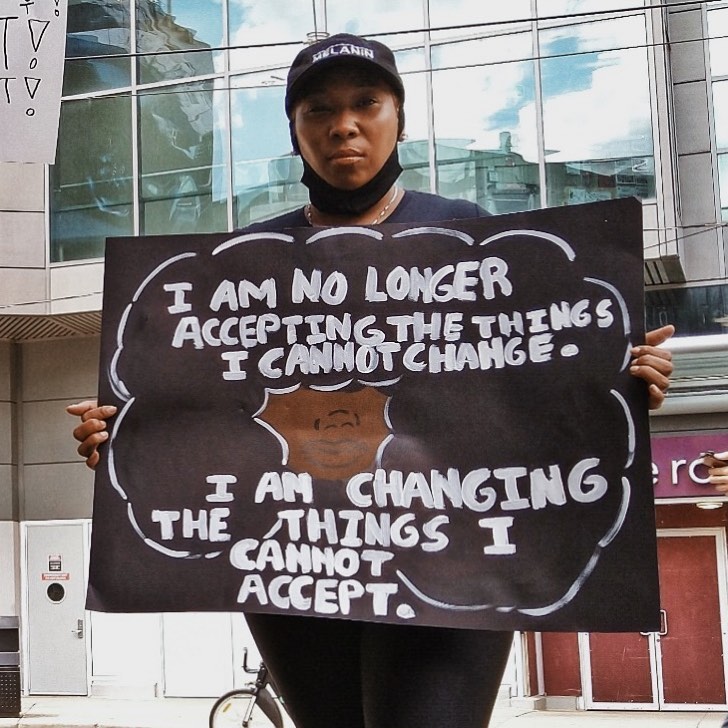 MELANIN
I AM NO LONGER
ACCEPTING THE THINGS
I CANNOT CHANGE.
I AM CHANGING
THE THINGS I
CANNOT
ACCEPT.